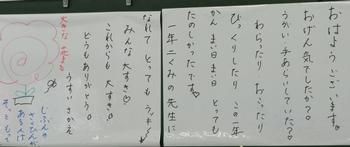 おはようございます。
おげん気でしたか？
うがい手あらいしていた？
わらったり おこったり
びっくりしたり この一年
かん まい日まい日 とっても
たのしかったです。
一年二くみの先生に
なれて とっても ラッキー♪
みんな 大すき♡
これからも 大すき♡
どうもありがとう。
うすい さかえ
大きな 花まる
じぶんの